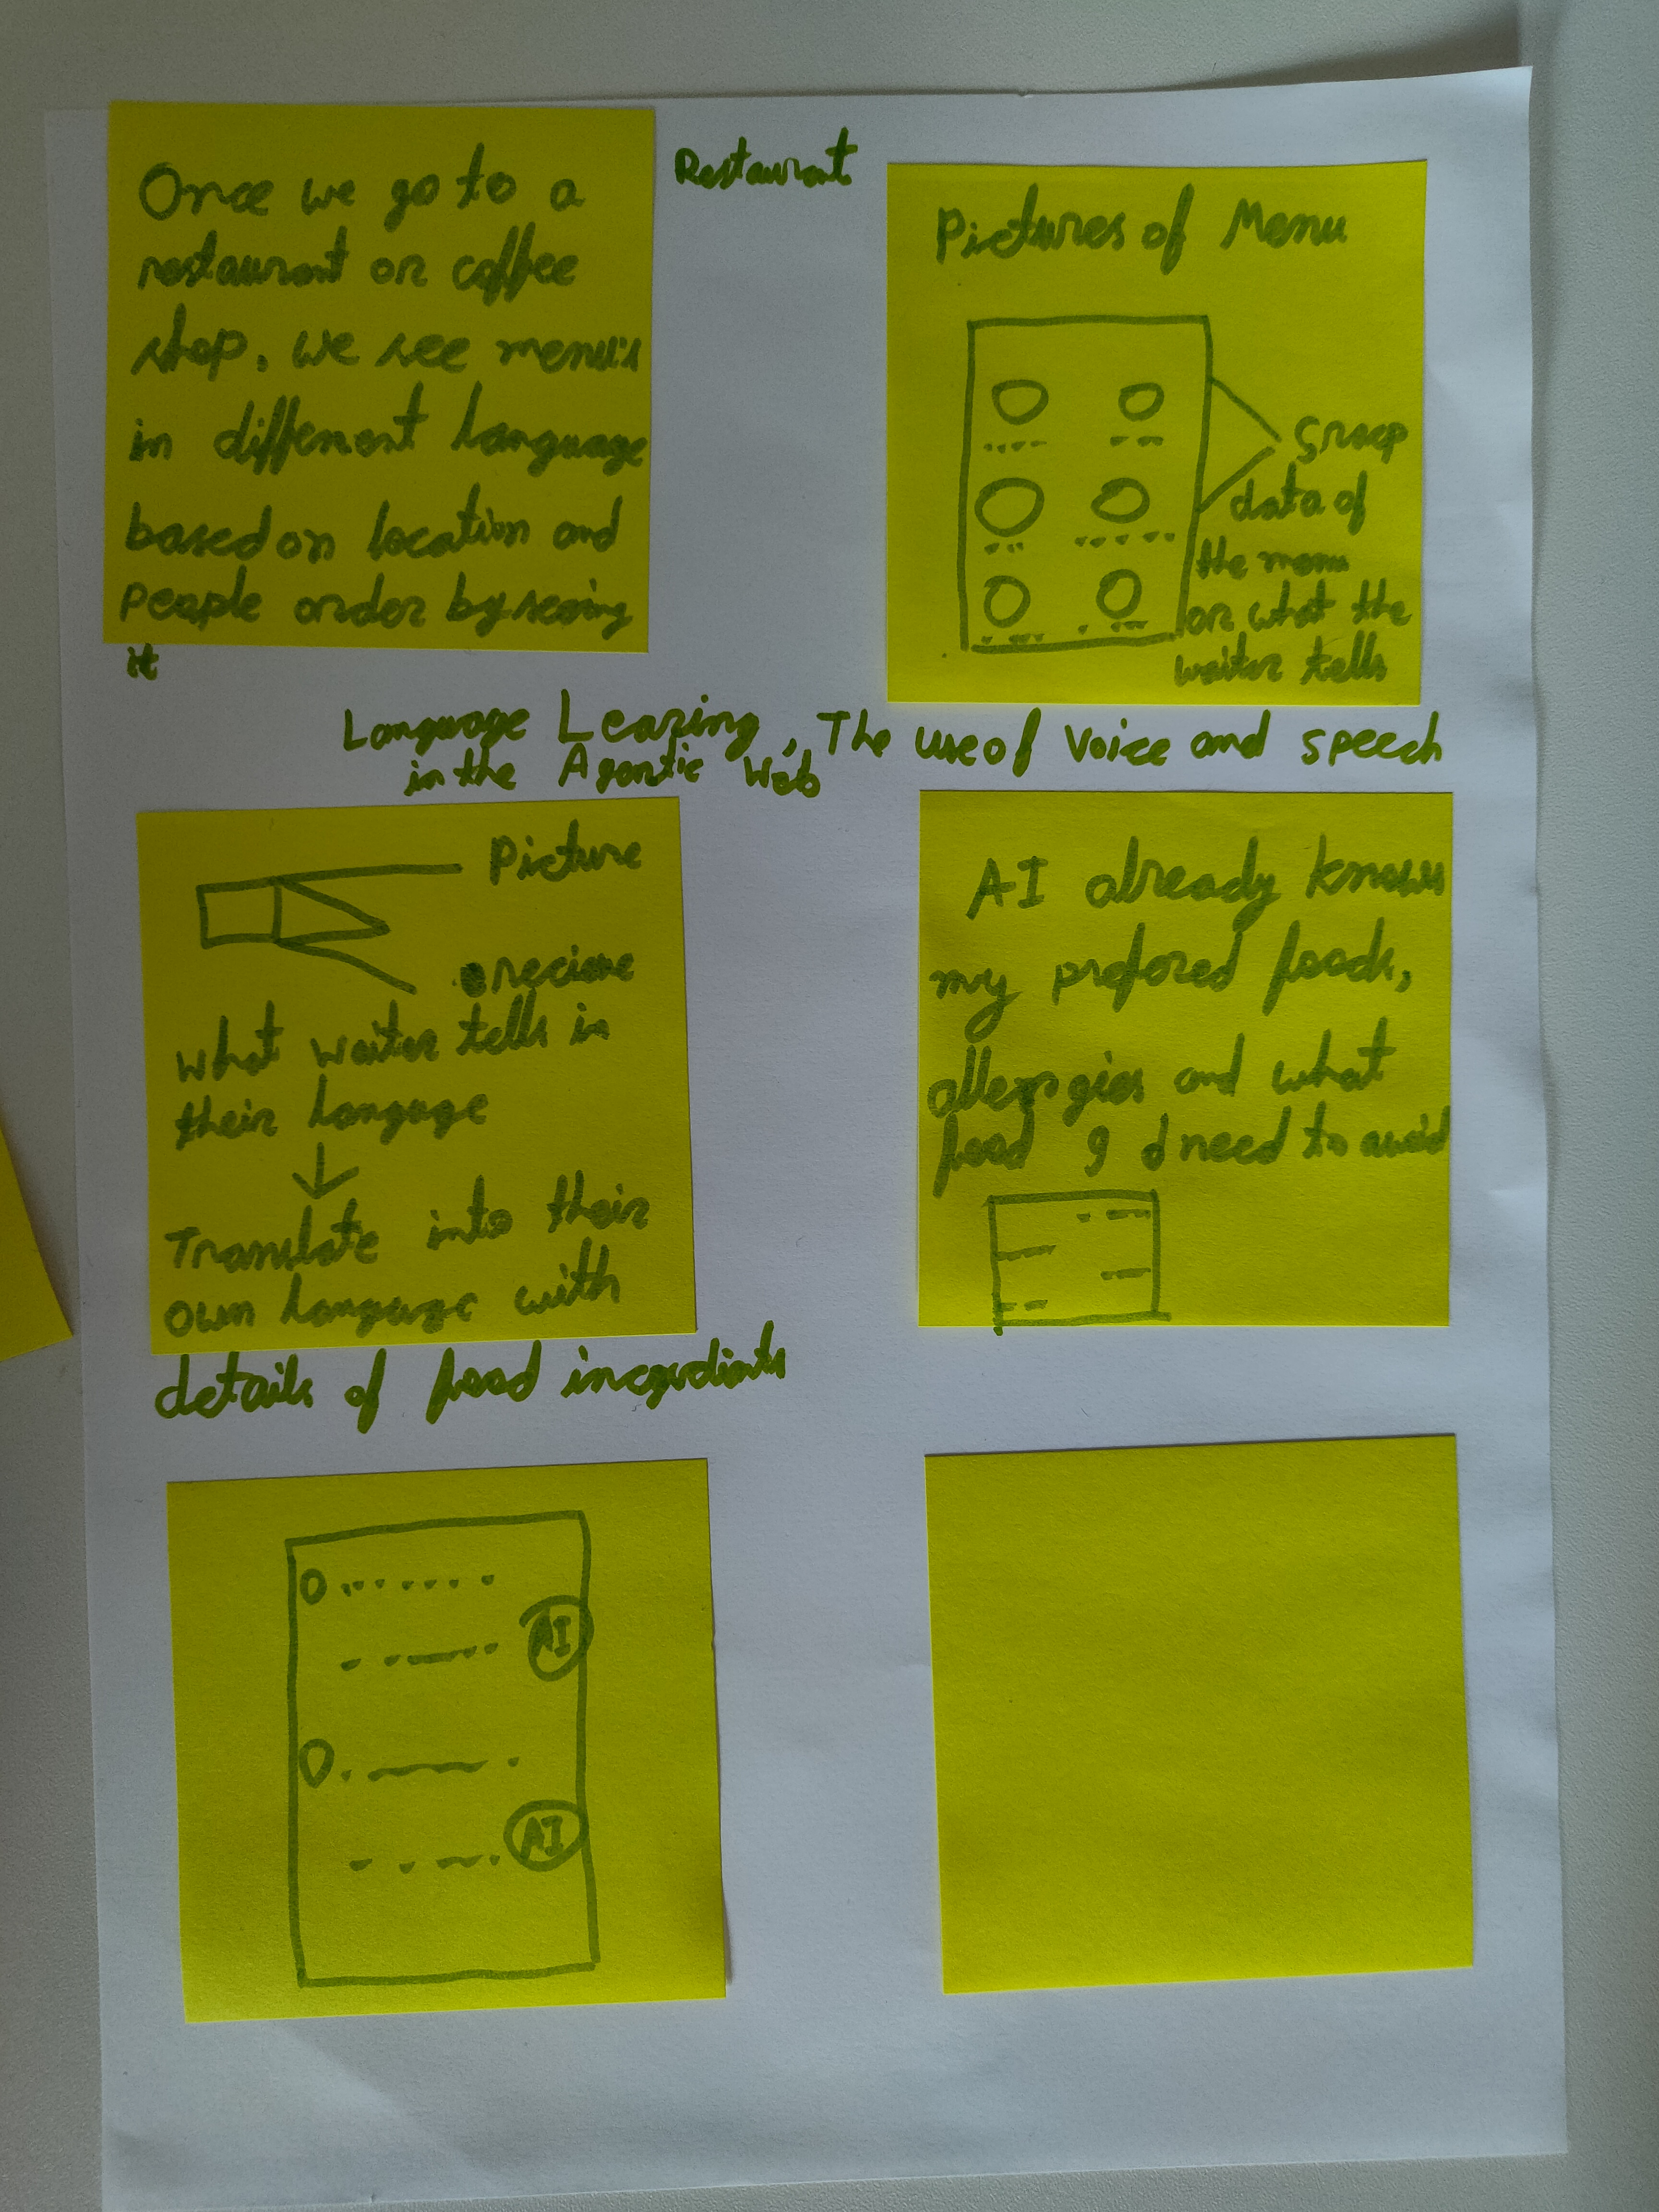 Restaurant
Once we go to a
restaurant or coffee
shop, we see menu's
in different language
based on location and
people order by seeing
it
Pictures of Menu
data of
the menu
or what the
waiter tells
Language Learing, The use of Voice and speech
in the Agentic Web
Picture
what waiter tells in
their langage
Translate into their
own language with
details of food
AI already knows
my prefered foods,
allergies and what
food I need to avoid
AI
AI